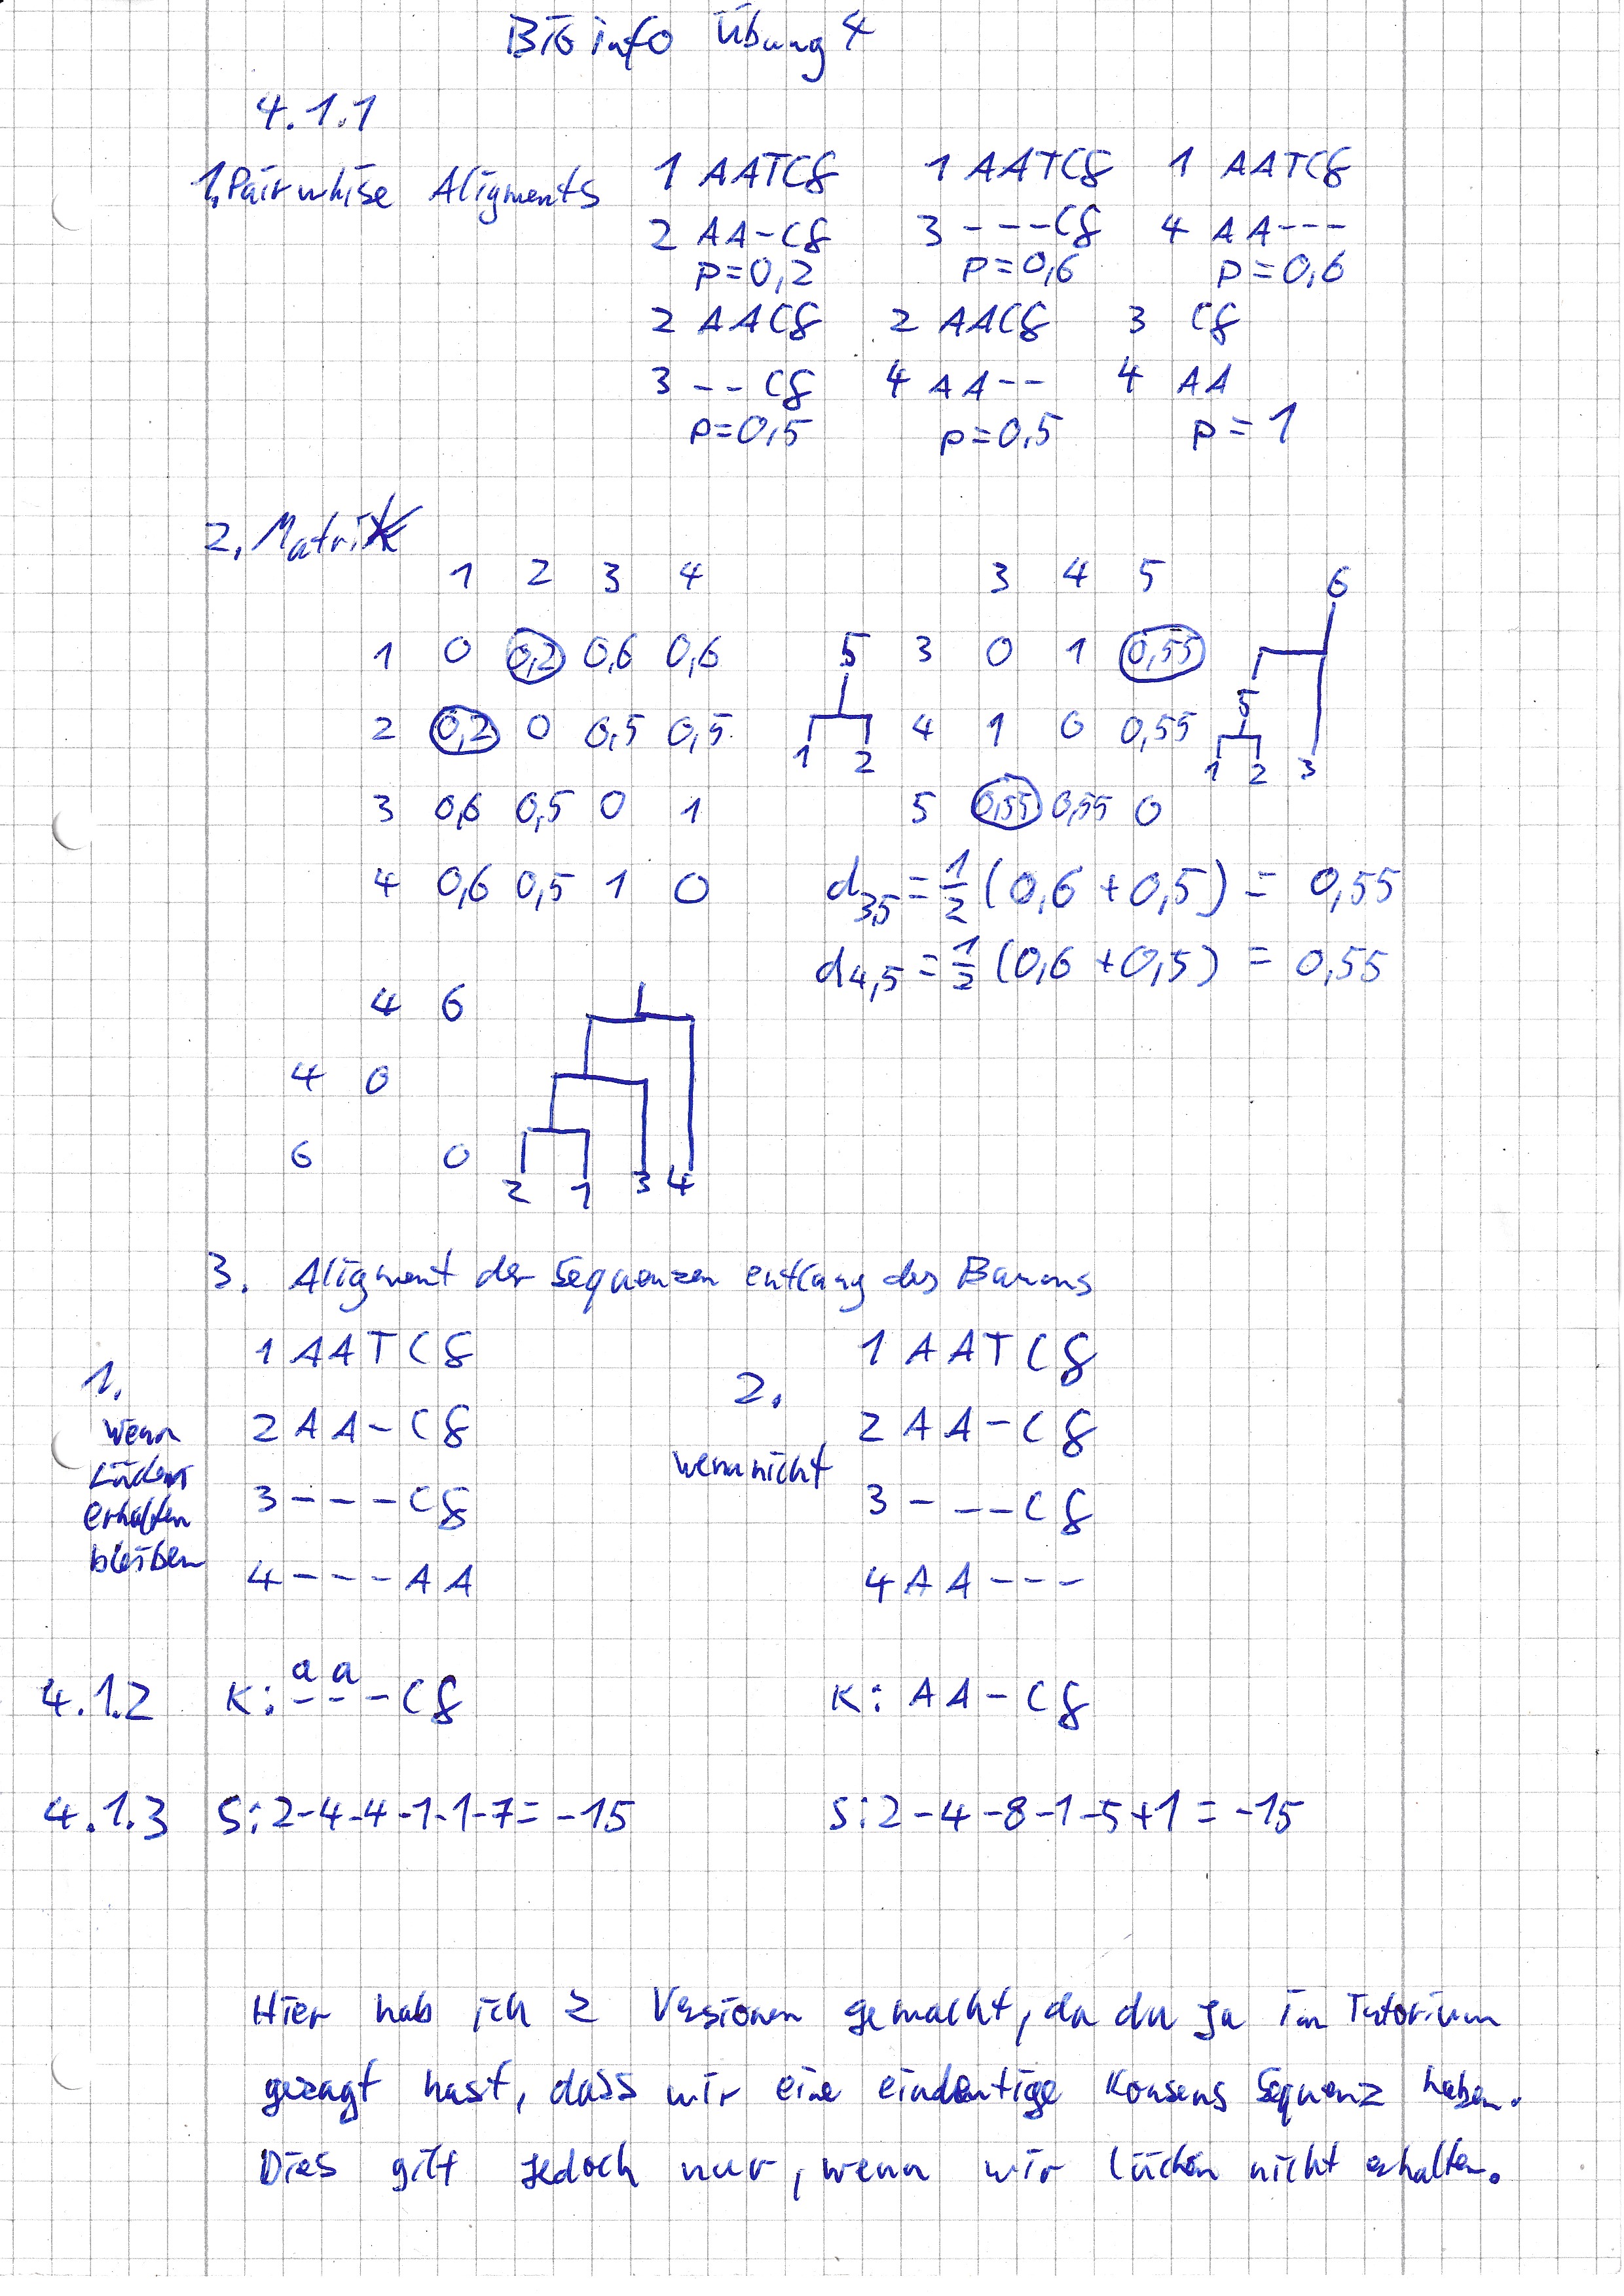 BIG info Übung 4
4.1.1
1. Pairwhise Aligments
1 AATCG 1 AATCG 1 AATCG
2 AA-CG 3 ---CG 4 AA---
p=0,2 p=0,6 p=0,6
2 AACG 2 AACG 3 CG
3 --CG 4 AA-- 4 AA
p=0,5 p=0,5 p=1
2. Matrix
1 2 3 4
1 0 0,2 0,6 0,6
2 0,2 0 0,5 0,5
3 0,6 0,5 0 1
4 0,6 0,5 1 0
5
1 2
3 4 5
3 0 1 0,55
4 1 0 0,55
5 0,55 0,55 0
6
5
1 2 3
d3,5 = 1/2 (0,6 + 0,5) = 0,55
d4,5 = 1/2 (0,6 + 0,5) = 0,55
4 6
4 0
6 0
2 1 3 4
3. Aligment der Sequenzen entlang des Baums
1.
wenn
Lücken
erhalten
bleiben
1 AATCG
2 AA-CG
3 ---CG
4 ---AA
2.
wenn nicht
1 AATCG
2 AA-CG
3 ---CG
4 AA---
4.1.2 K: a a
---CG K: AA-CG
4.1.3 S: 2-4-4-1-1-7= -15 S: 2-4-8-1-5+1 = -15
Hier hab ich 2 Versionen gemacht, da du ja im Tutorium
gesagt hast, dass wir eine eindeutige Konsens Sequenz haben.
Dies gilt jedoch nur, wenn wir lücken nicht erhalten.